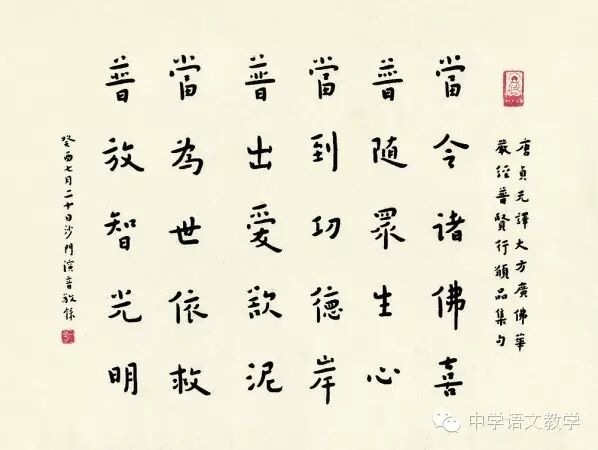 唐貞元譯大方廣佛華
嚴經普賢行願品集句
當令諸佛喜
普隨眾生心
當到功德岸
普出愛欲泥
當為世依救
普放智光明
癸酉七月二十日沙門演音敬錄
中学语文教学